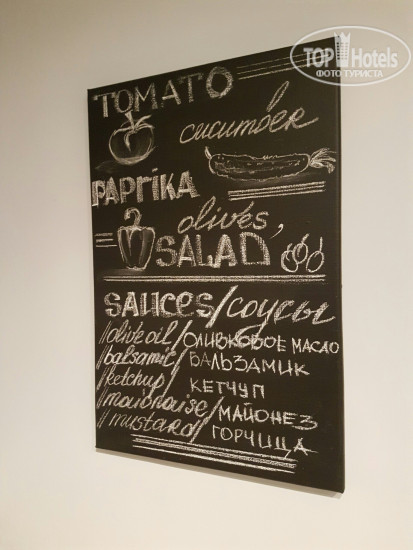 TOP Hotels
ФОТО ТУРИСТА
TOMATO
cucumber
PAPRIKA
olives,
SALAD
SAUCES/соусы
//olive oil/ОЛИВКОВОЕ МАСЛО
//balsamic/БАЛЬЗАМИК
//ketchup/КЕТЧУП
//maionaise/МАЙОНЕЗ
//mustard/ГОРЧИЦА